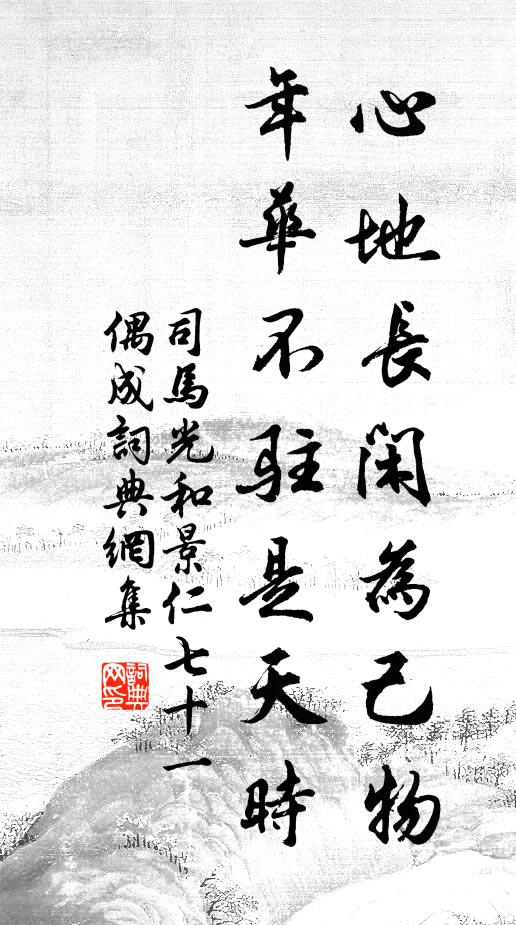 心地長閑為己物
年華不駐是天時
司馬光和景仁七十一
偶成詞典網集
詞典網印